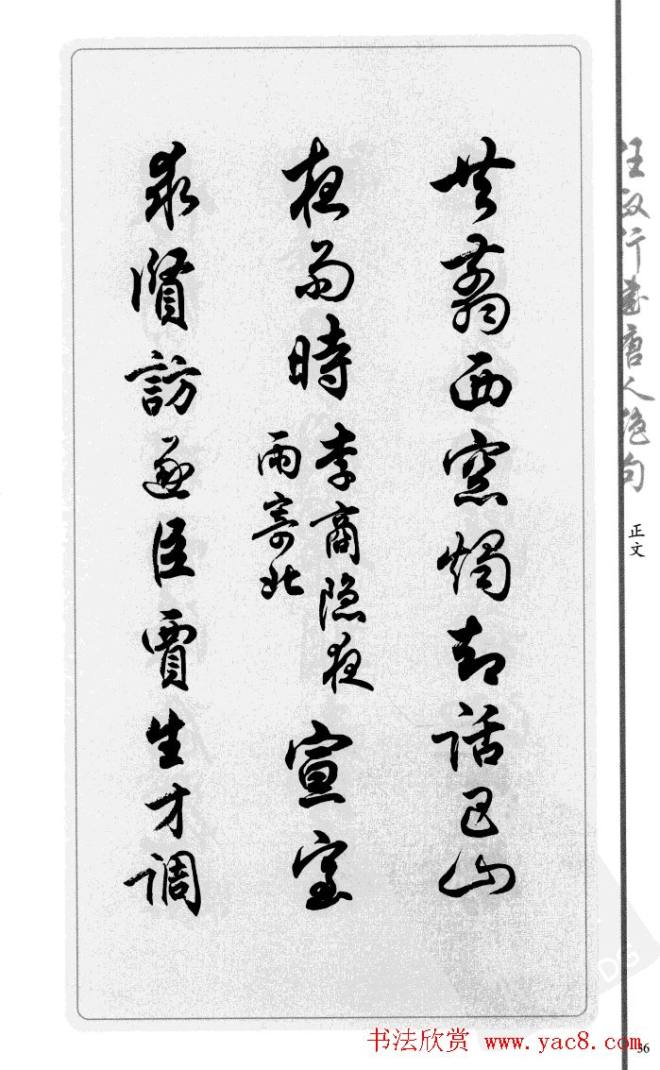 共翦西窓燭却話巴山
夜雨時
李商隐夜
雨寄北
宣室
求賢訪逐臣賈生才調
任政行書唐人絶句
正文
书法欣赏 www.yac8.com
36